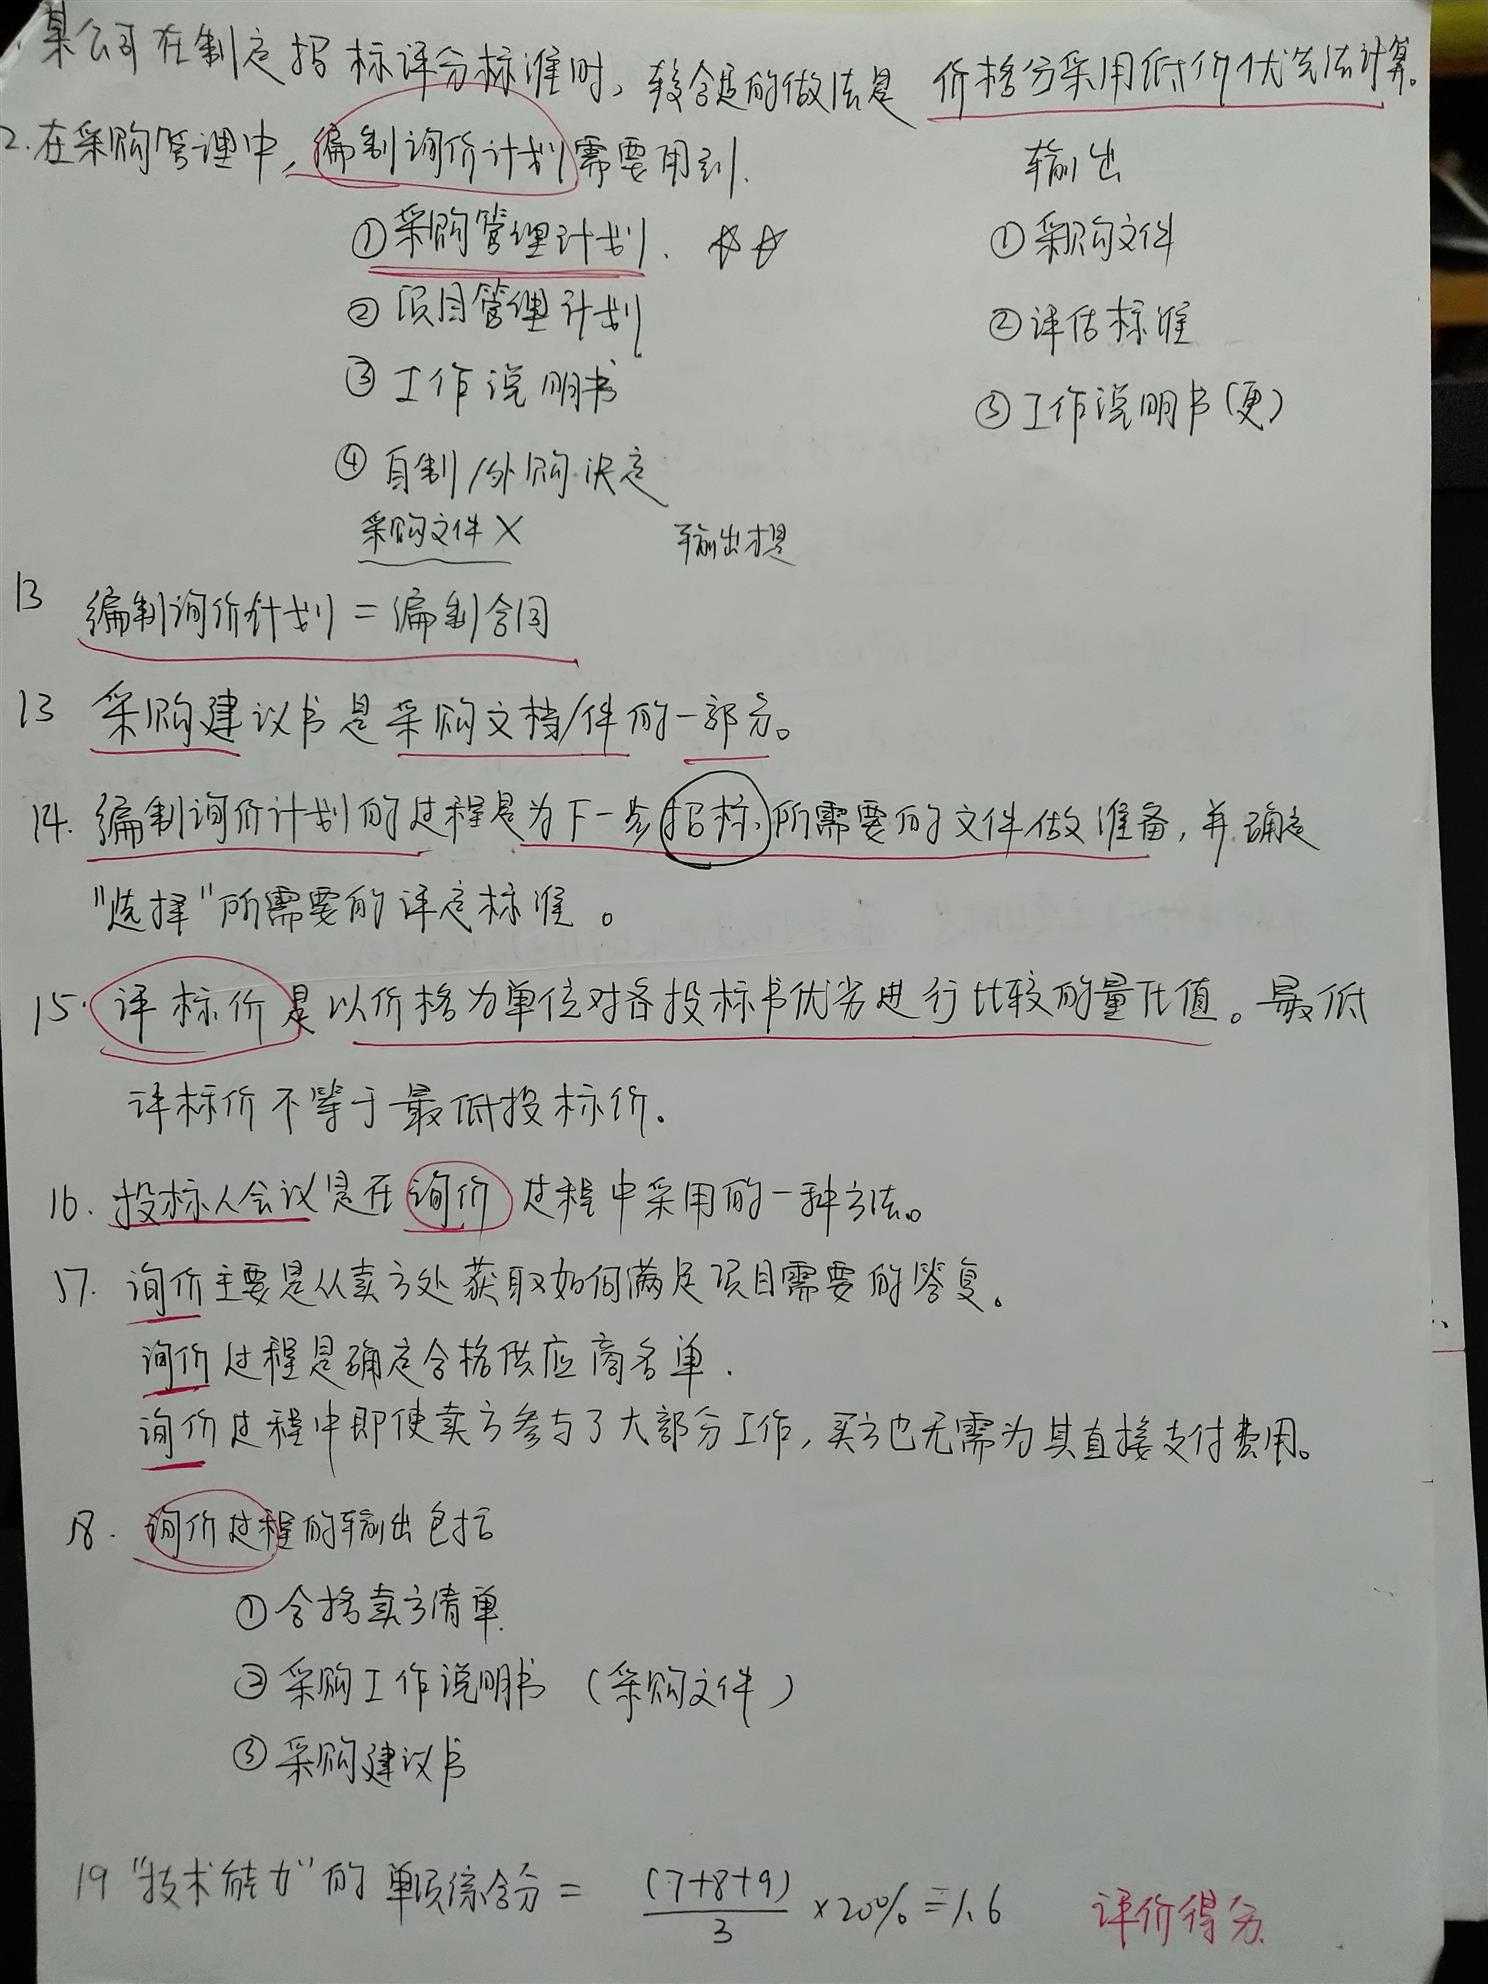 某公司在制定招标评分标准时，较合适的做法是 价格分采用低价优先法计算。
2.在采购管理中，编制询价计划需要用到.
输出
①采购管理计划. ☆☆
①采购文件
②项目管理计划
②评估标准
③工作说明书
③工作说明书(更)
④自制/外购决定
采购文件 X 输出才是
13 编制询价计划=编制合同
13 采购建议书是采购文档/件的一部分。
14. 编制询价计划的过程是为下一步招标所需要的文件做准备，并确定
"选择"所需要的评定标准。
15. 评标价是以价格为单位对各投标书优劣进行比较的量化值。最低
评标价不等于最低投标价.
16. 投标人会议是在询价过程中采用的一种方法。
17. 询价主要是从卖方处获取如何满足项目需要的答复。
询价过程是确定合格供应商名单.
询价过程中即使卖方参与了大部分工作，买方也无需为其直接支付费用。
18. 询价过程的输出包括
①合格卖方清单
②采购工作说明书 (采购文件)
③采购建议书
19 "技术能力"的单项综合分= (7+8+9)/3 ×20% =1.6 评价得分